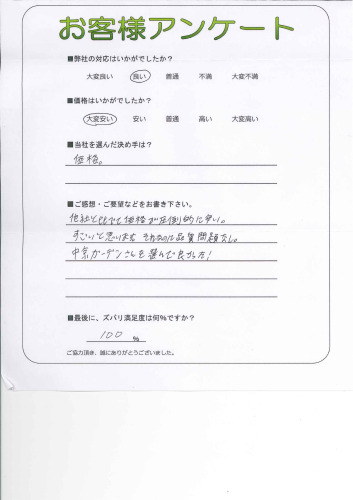 お客様アンケート
■弊社の対応はいかがでしたか?
大変良い 良い 普通 不満 大変不満
■価格はいかがでしたか?
大変安い 安い 普通 高い 大変高い
■当社を選んだ決め手は?
価格。
■ご感想・ご要望などをお書き下さい。
他社と比べて価格が圧倒的に安い。
すごいと思います それなのに品質問題なし。
中京ガーデンさんを選んで良かった!
■最後に、ズバリ満足度は何%ですか?
100 %
ご協力頂き、誠にありがとうございました。